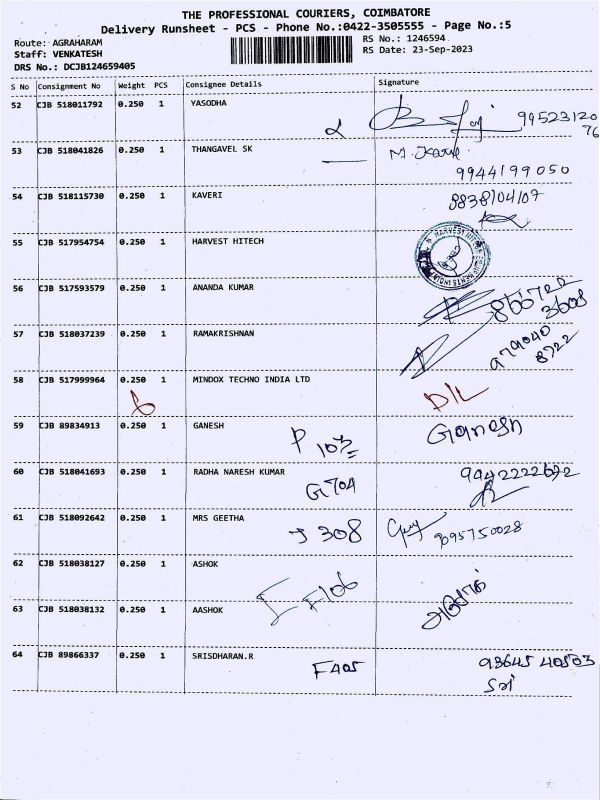 THE PROFESSIONAL COURIERS, COIMBATORE
Delivery Runsheet - PCS - Phone No.:0422-3505555 - Page No.:5
Route: AGRAHARAM
RS No.: 1246594
Staff: VENKATESH
RS Date: 23-Sep-2023
DRS No.: DCJB124659405
S No Consignment No Weight PCS Consignee Details Signature
52 CJB 518011792 0.250 1 YASODHA
9952312076
53 CJB 518041826 0.250 1 THANGAVEL SK
9944199050
54 CJB 518115730 0.250 1 KAVERI
8838104107
55 CJB 517954754 0.250 1 HARVEST HITECH
56 CJB 517593579 0.250 1 ANANDA KUMAR
57 CJB 518037239 0.250 1 RAMAKRISHNAN
979040
8722
58 CJB 517999964 0.250 1 MINDOX TECHNO INDIA LTD
D/L
59 CJB 89834913 0.250 1 GANESH
P 103 Ganesh
60 CJB 518041693 0.250 1 RADHA NARESH KUMAR
G704
61 CJB 518092642 0.250 1 MRS GEETHA
J 308
9095750028
62 CJB 518038127 0.250 1 ASHOK
F106
63 CJB 518038132 0.250 1 AASHOK
அசோக்
64 CJB 89866337 0.250 1 SRISDHARAN.R
F405 93645 40503
Sri